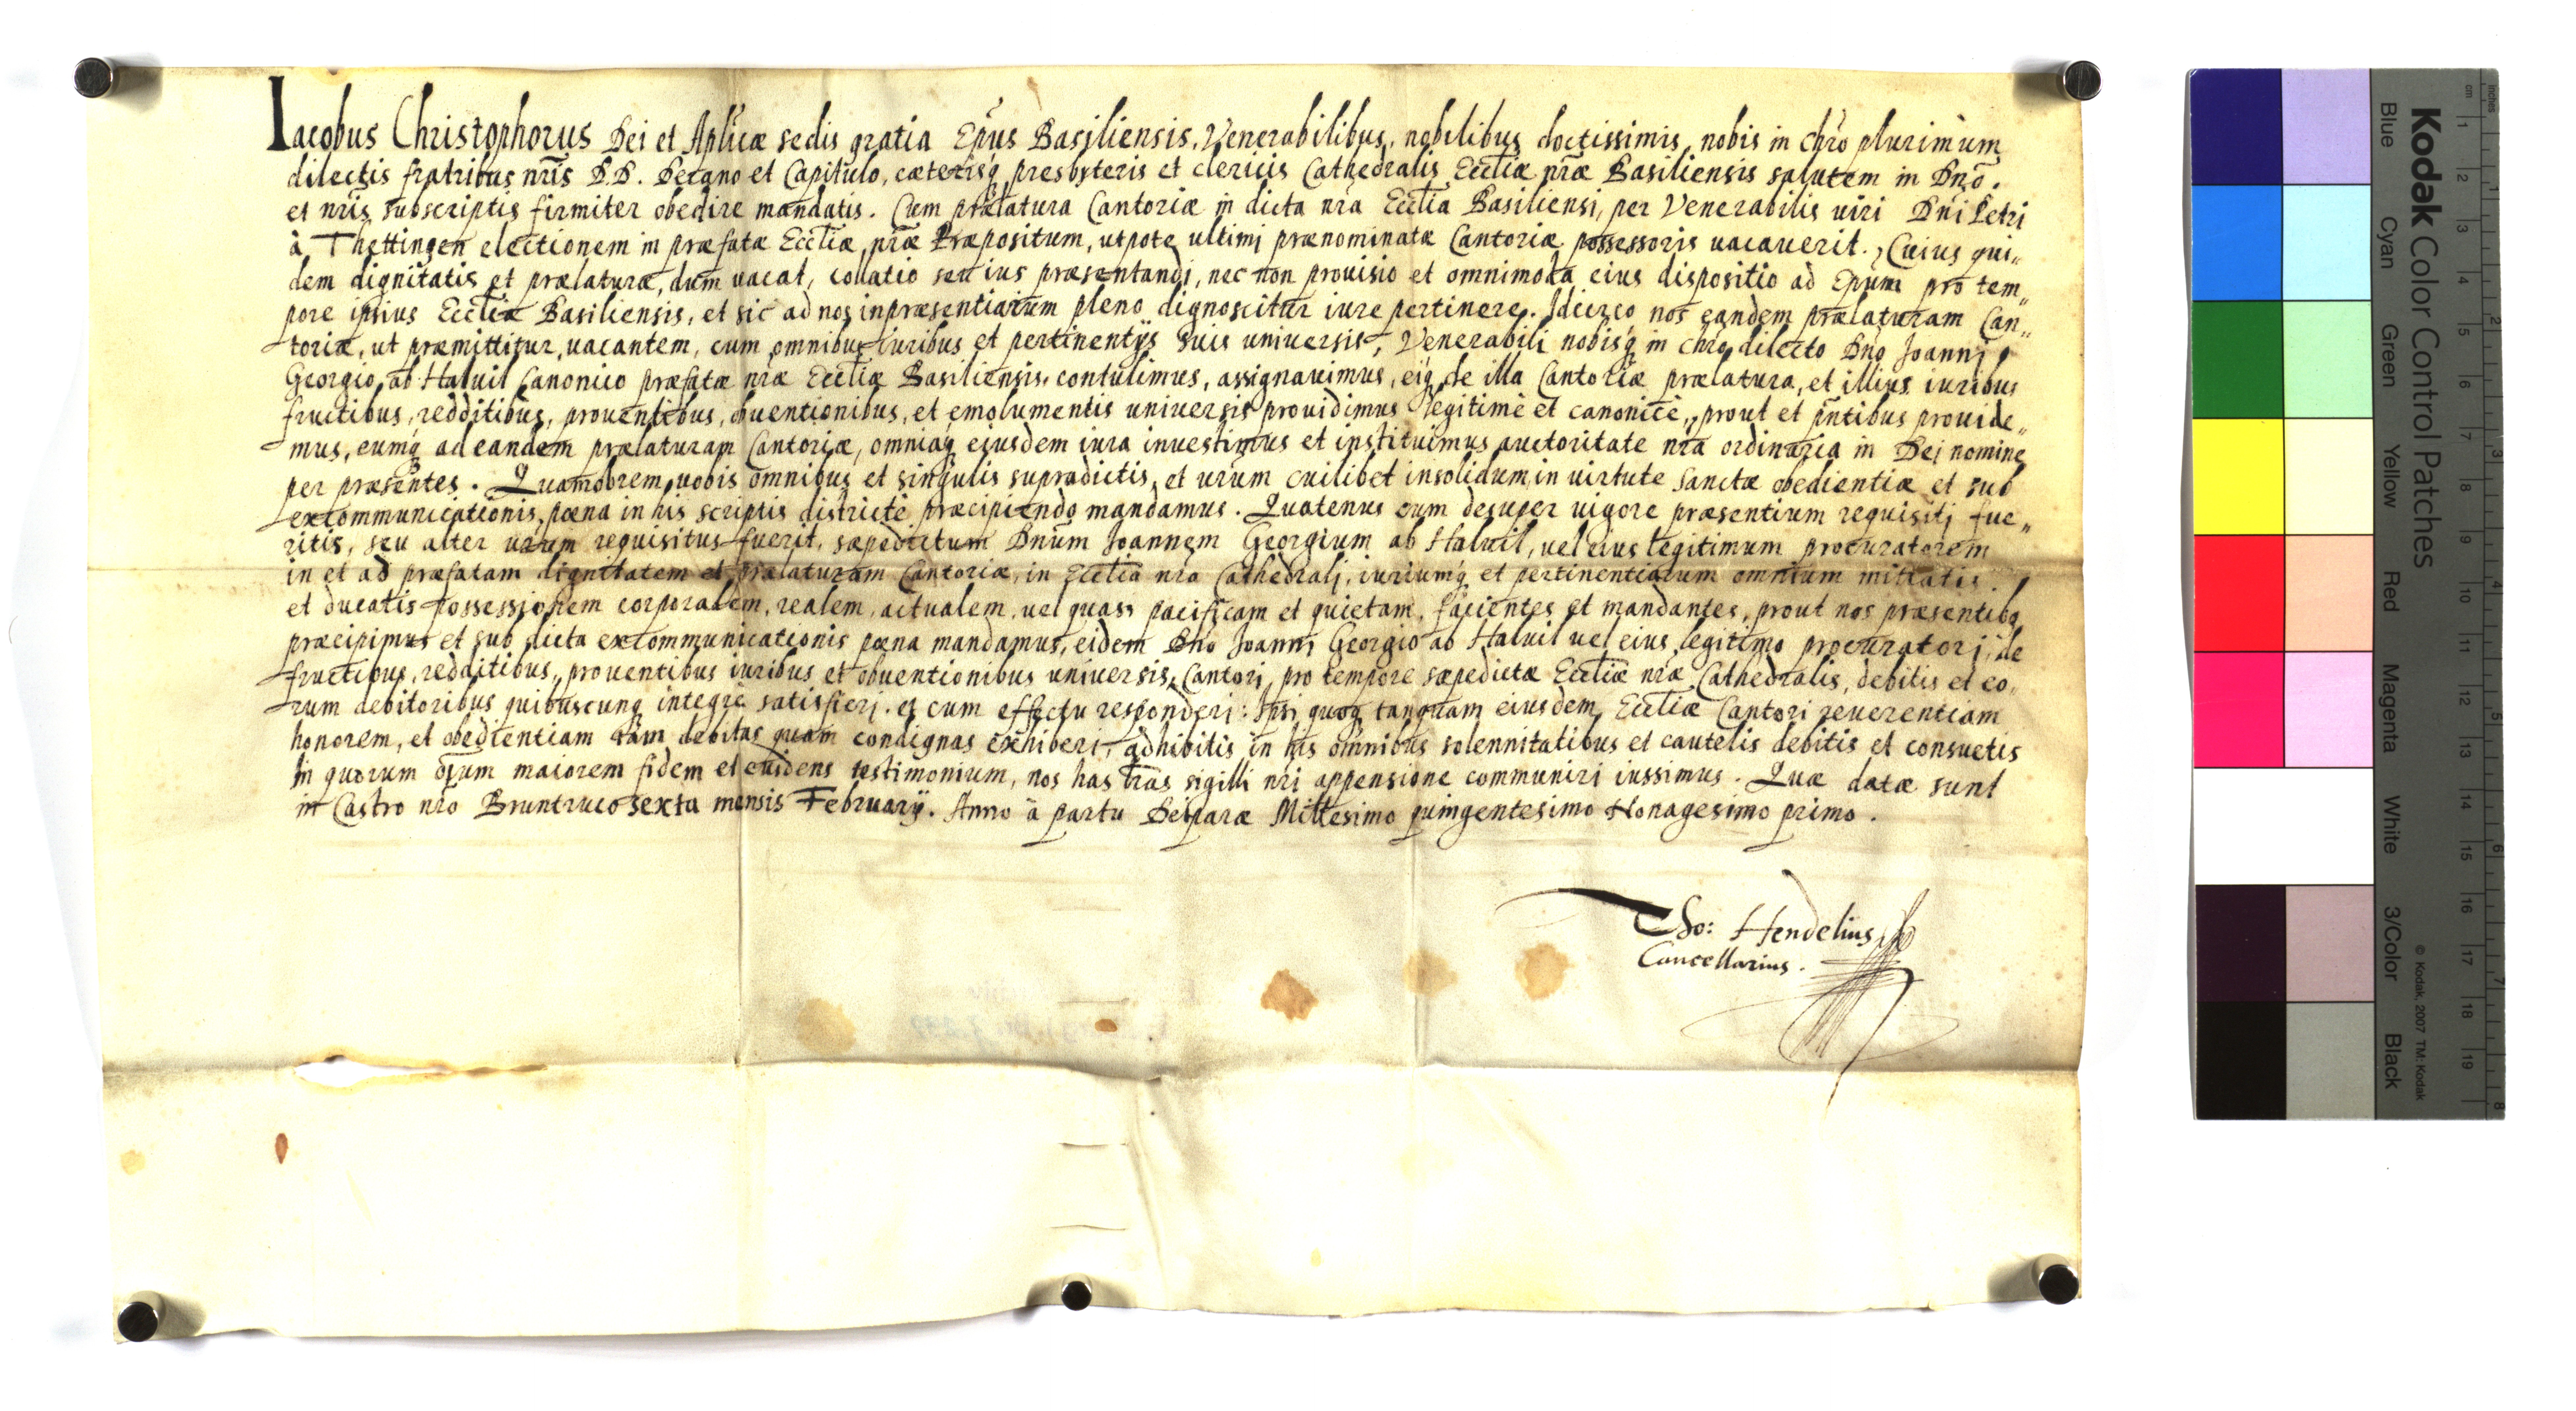 Iacobus Christophorus Dei et Aplicæ sedis gratia Epus Basiliensis, Venerabilibus, nobilibus doctissimis, nobis in chro plurimum
dilectis fratribus nris D.D. Decano et Capitulo, cæterisq presbyteris et clericis Cathedralis Eccliæ nræ Basiliensis salutem in Dno.
et nris subscriptis firmiter obedire mandatis. Cum prælatura Cantoriæ in dicta nra Ecclia Basiliensi, per Venerabilis uiri Dni Petri
à Thettingen electionem in præfatæ Eccliæ nræ Præpositum, utpote ultimi prænominatæ Cantoriæ possessoris uacauerit. Cuius qui„
dem dignitatis et prælaturæ, dum uacat, collatio seu ius præsentandi, nec non prouisio et omnimoda eius dispositio ad Epum pro tem„
pore ipsius Eccliæ Basiliensis, et sic ad nos inpræsentiarum pleno dignoscitur iure pertinere. Idcirco nos eandem prælaturam Can„
toriæ, ut præmittitur, uacantem, cum omnibus iuribus et pertinentijs suis uniuersis, Venerabili nobisq in chro dilecto Dno Joanni
Georgio ab Haluil Canonico præfatæ nræ Eccliæ Basiliensis, contulimus, assignauimus, eiq de illa Cantoriæ prælatura, et illius iuribus
fructibus, redditibus, prouentibus, obuentionibus, et emolumentis uniuersis prouidimus legitimè et canonicè, prout et pntibus prouide„
mus, eumq ad eandem prælaturam Cantoriæ, omniaq eiusdem iura inuestimus et instituimus auctoritate nra ordinaria in Dei nomine
per præsentes. Quamobrem uobis omnibus et singulis supradictis, et urum cuilibet insolidum, in uirtute sanctæ obedientiæ et sub
excommunicationis pœna in his scriptis districtè præcipiendo mandamus. Quatenus cum desuper uigore præsentium requisiti fue„
ritis, seu alter urum requisitus fuerit, sæpedictum Dnum Joannem Georgium ab Haluil, uel eius legitimum procuratorem
in et ad præfatam dignitatem et prælaturam Cantoriæ, in Ecclia nra Cathedrali, iuriumq et pertinentiarum omnium mittatis
et ducatis possessionem corporalem, realem, actualem, uel quasi pacificam et quietam, facientes et mandantes, prout nos præsentibq
præcipimus et sub dicta excommunicationis pœna mandamus, eidem Dno Joanni Georgio ab Haluil uel eius legitimo procuratori, de
fructibus, redditibus, prouentibus iuribus et obuentionibus uniuersis, Cantori pro tempore sæpedictæ Eccliæ nræ Cathedralis, debitis et eo„
rum debitoribus quibuscunq integrè satisfieri. et cum effectu responderi: Ipsi quoq tanquam eiusdem Eccliæ Cantori reuerentiam
honorem, et obedientiam tam debitas quam condignas exhiberi, adhibitis in his omnibus solennitatibus et cautelis debitis et consuetis
In quorum oium maiorem fidem et euidens testimonium, nos has lras sigilli nri appensione communiri iussimus. Quæ datæ sunt
in Castro nro Bruntruto sexta mensis Februarij. Anno à partu Deiparæ Millesimo quingentesimo Nonagesimo primo.
Jo: Hendelius
Cancellarius.
Kodak Color Control Patches
Blue Cyan Green Yellow Red Magenta White 3/Color Black
© Kodak, 2007 TM: Kodak
cm 1 2 3 4 5 6 7 8 9 10 11 12 13 14 15 16 17 18 19
inches 1 2 3 4 5 6 7 8